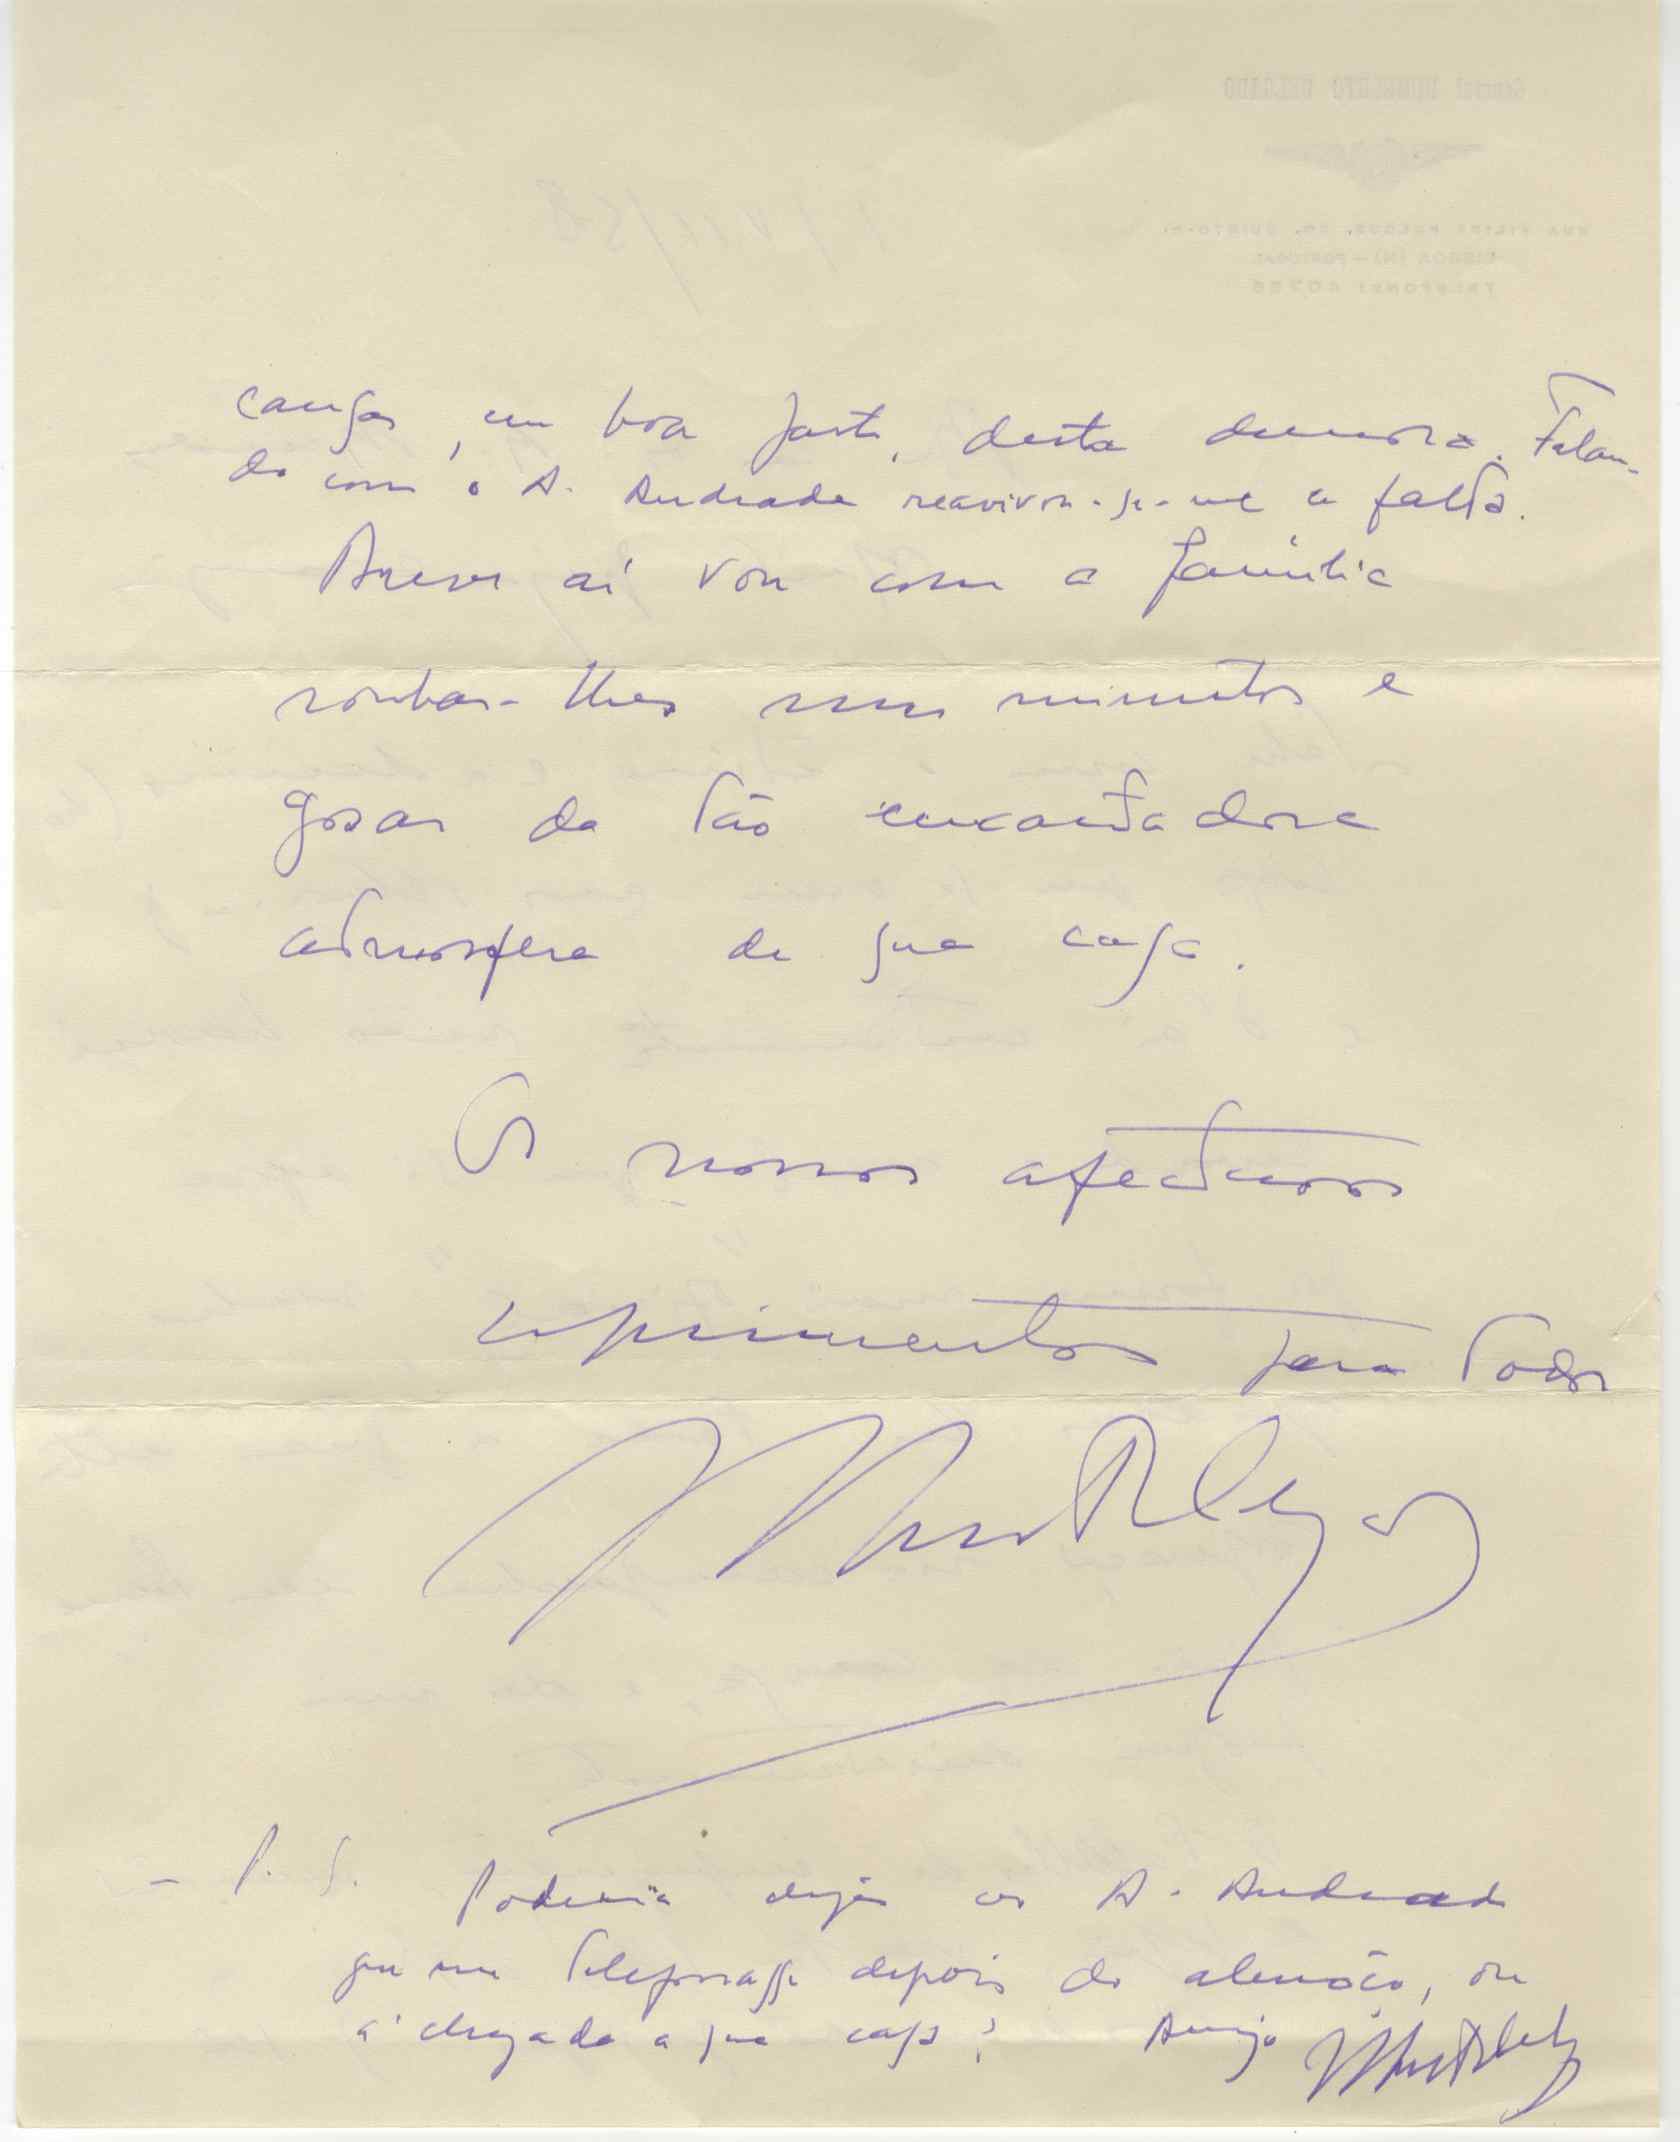 causa, em boa parte, desta demora. Falan-
do com o A. Andrade reavivou-se-me a falta.
Breve aí vou com a família
roubar-lhes uns minutos e
gosar da tão encantadora
atmosfera de sua casa.
Os nossos afectuosos
cuprimentos para todos
- P. S. Poderia dizer ao A. Andrade
que me telefonasse depois do almoço, ou
à chegada a sua casa? Amigo